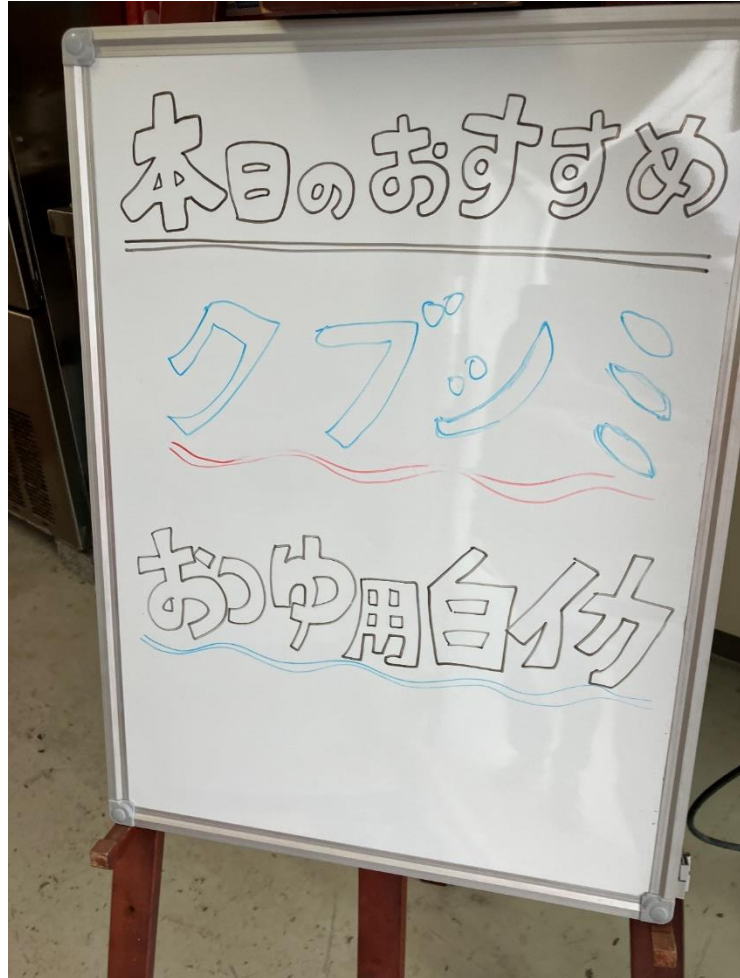 本日のおすすめ
クブシミ
おつゆ用白イカ